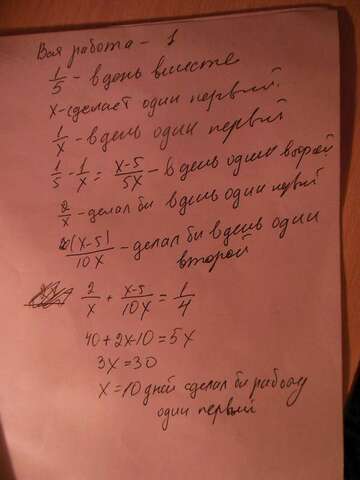 Вся работа - 1
1/5 - в день вместе
x - сделает один первый.
1/x - в день один первый
1/5 - 1/x = x-5/5x - в день один второй
2/x - делал бы в день один первый
(x-5)/10x - делал бы в день один
второй
2/x + x-5/10x = 1/4
40+2x-10=5x
3x=30
x=10 дней сделал бы работу
один первый